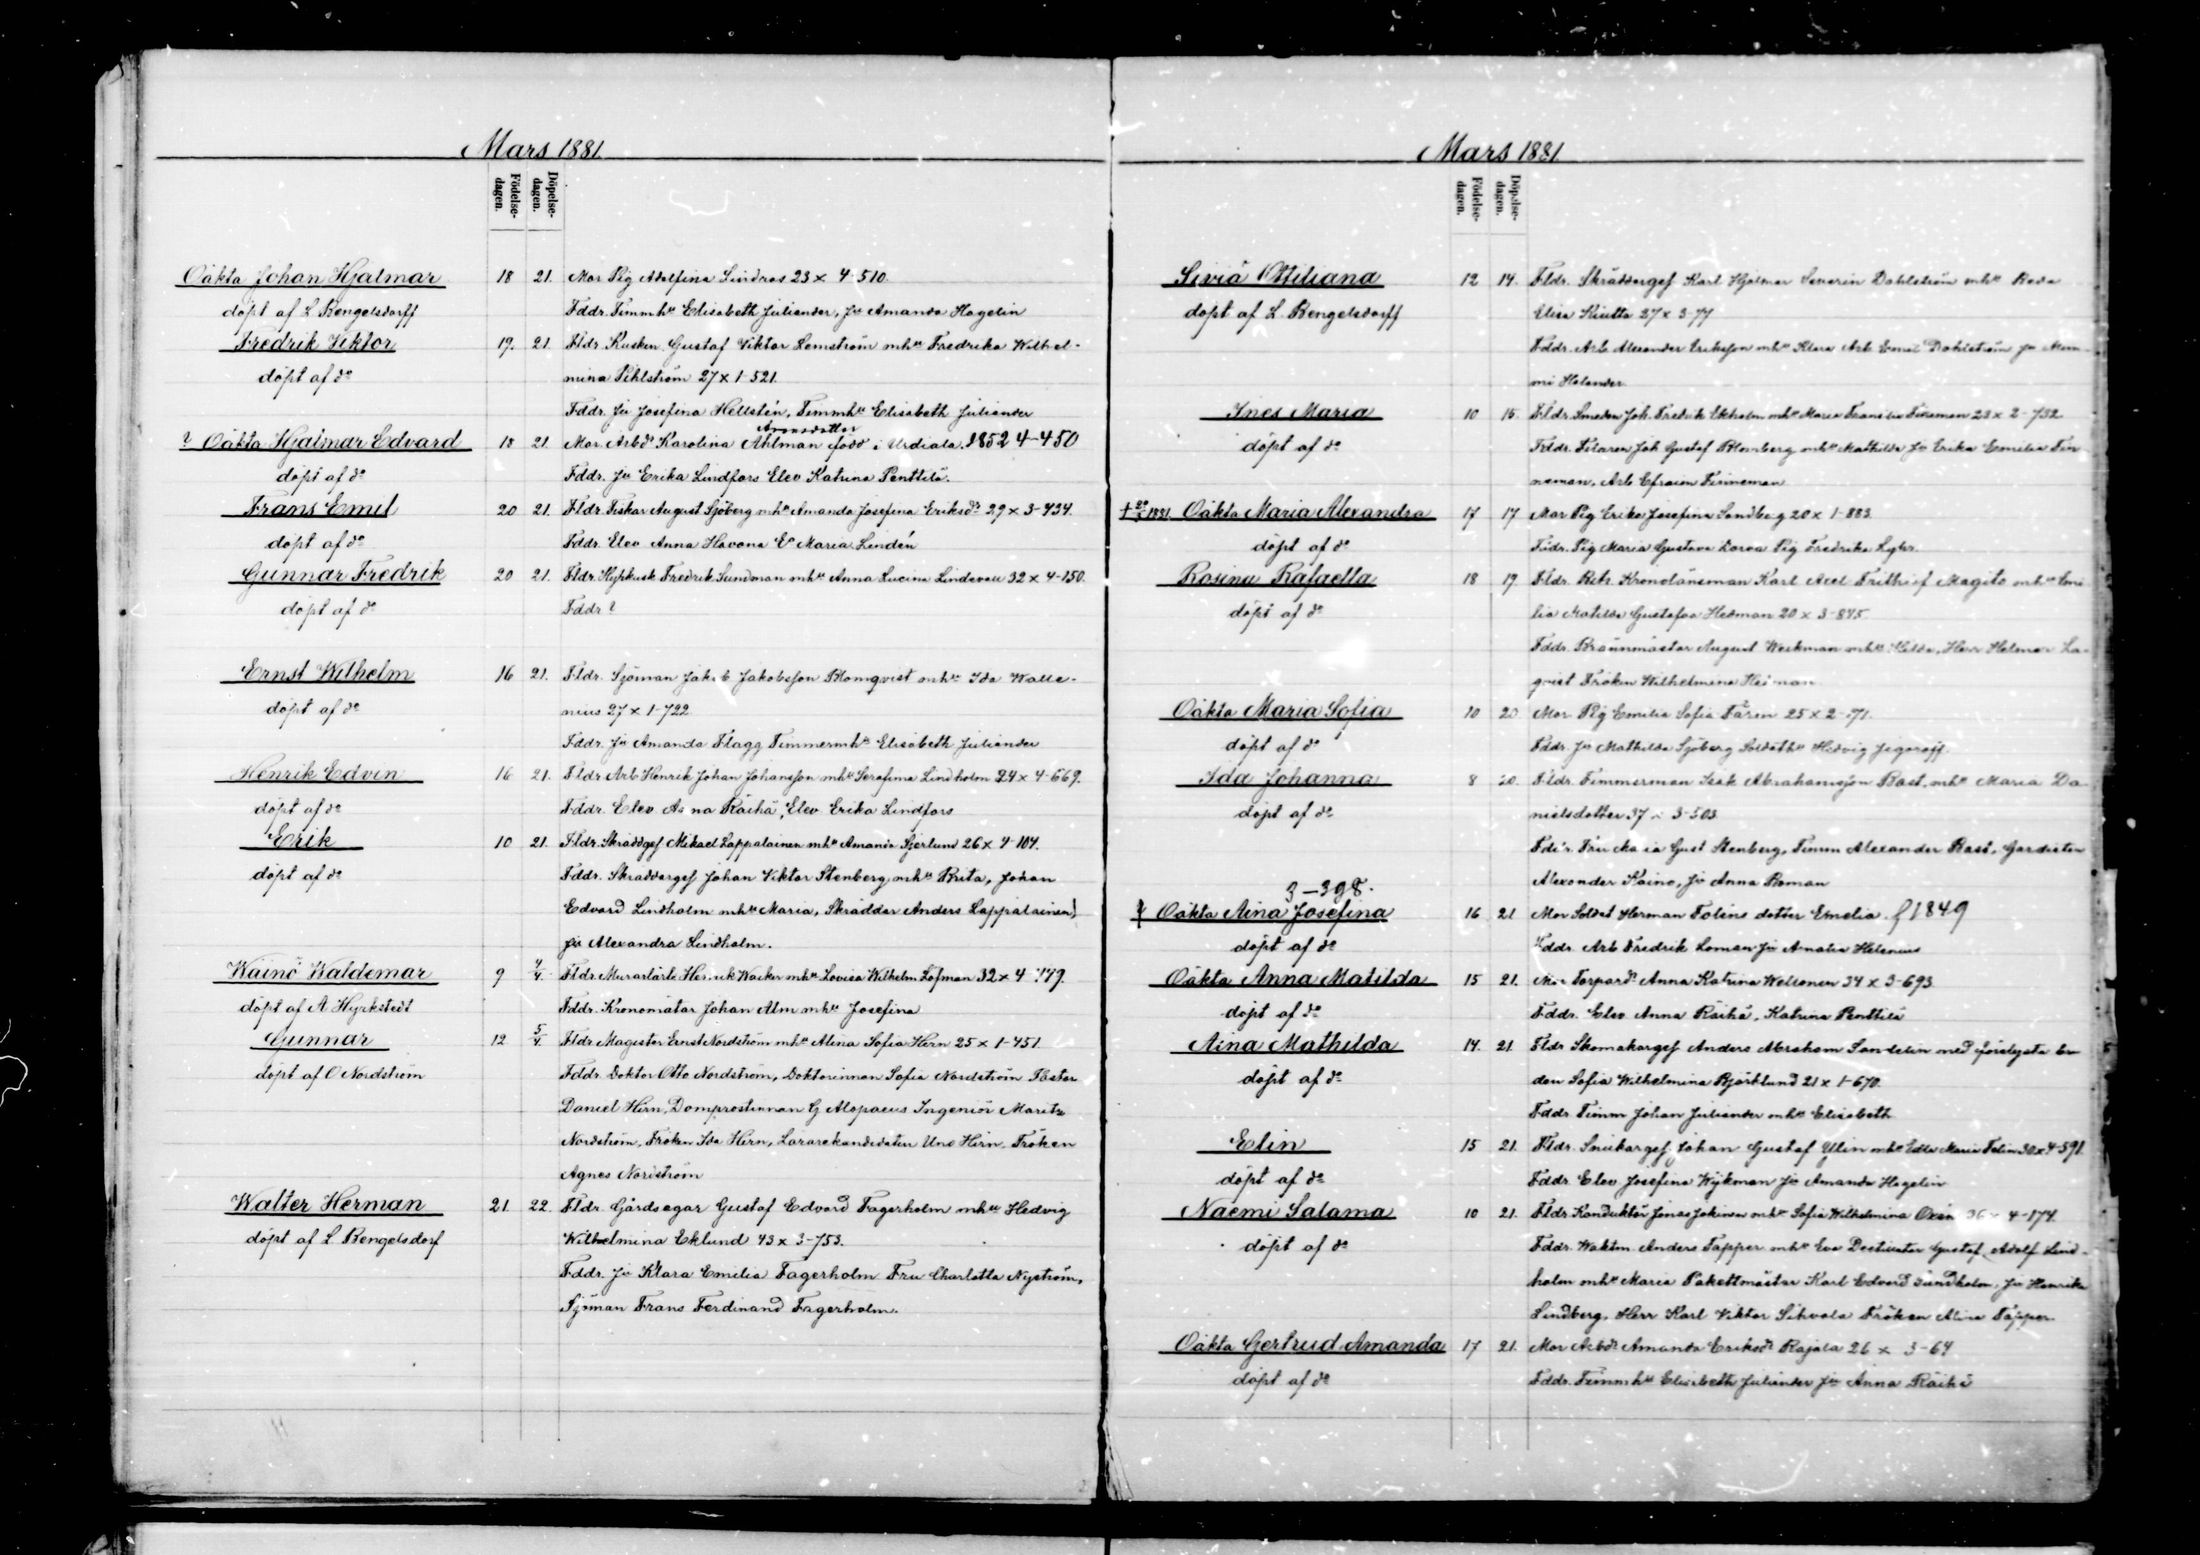 Mars 1881.
Födelse-
dagen.
Döpelse-
dagen.
Oäkta Johan Hjalmar 18 21. Mor Pig Adolfina Lindros 23 x 4-510.
döpt af L Bengelsdorff Fddr. Timmhu Elisabeth Juliander, Ju Amanda Hagelin
Fredrik Viktor 19. 21. Fldr. Kusken Gustaf Viktor Lemström mhu Fredrika Wilhel-
döpt af do mina Pihlström 27 x 1-521.
Fddr. Ju Josefina Hellstén, Timmhu Elisabeth Juliander
Aronsdotter
? Oäkta Hjalmar Edvard 18 21. Mor Arbd Karolina Ahlman född i Urdiala 1852 4-450
döpt af do Fddr. Ju Erika Lindfors Elev Katrina Penttilä.
Frans Emil 20 21. Fldr Fiskar August Sjöberg mhu Amanda Josefina Eriksdr 29 x 3-434.
döpt af do Fddr. Elev Anna Havona Eo Maria Lindén
Gunnar Fredrik 20 21. Fldr. Hyrkusk Fredrik Sundman mhu Anna Lucina Lindevall 32 x 4-150.
döpt af do Fddr ?
Ernst Wilhelm 16 21. Fldr. Sjöman Jakob Jakobsson Blomqvist mhu Ida Walle-
döpt af do nius 27 x 1-722
Fddr. Ju Amanda Flagg Timmermhu Elisabeth Juliander
Henrik Edvin 16 21. Fldr Arb Henrik Johan Johansson mhu Serafina Lindholm 24 x 4-669.
döpt af do Fddr. Elev Anna Räihä, Elev Erika Lindfors
Erik 10 21. Fldr. Skräddgef Mikael Lappalainen mhu Amanda Sjerlund 26 x 4-104.
döpt af do Fddr. Skräddergef Johan Viktor Stenberg mhu Brita, Johan
Edvard Lindholm mhu Maria, Skräddar Anders Lappalainen,
ju Alexandra Lindholm.
Wäinö Waldemar 9 7/4. Fldr. Murarlärl. Henrik Wacker mhu Lovisa Wilhelm. Löfman 32 x 4-149.
döpt af A Hyrkstedt Fddr. Kronomätar Johan Alm mhu Josefina
Gunnar 12 5/4. Fldr Magister Ernst Nordström mhu Alina Sofia Hirn 25 x 1-451.
döpt af O Nordström Fddr Doktor Otto Nordström, Doktorinnan Sofia Nordström Pastor
Daniel Hirn, Domprostinnan G Alopaeus Ingeniör Maritz
Nordström, Fröken Ida Hirn, Lärarekandidaten Uno Hirn, Fröken
Agnes Nordström
Walter Herman 21. 22. Fldr. Gårdsägar Gustaf Edvard Fagerholm mhu Hedvig
döpt af L Bengelsdorf Wilhelmina Eklund 43 x 3-753.
Fddr. Ju Klara Emilia Fagerholm Fru Charlotta Nyström,
Sjöman Frans Ferdinand Fagerholm.
Mars 1881
Födelse-
dagen.
Döpelse-
dagen.
Siviä Ottiliana 12 14. Fldr. Skräddergef Karl Hjalmar Severin Dahlström mhu Beda
döpt af L. Bengelsdorff Elisa Kiutta 27 x 3-77
Fddr. Arb Alexander Eriksson mhu Klara Arb Emil Dahlström ju Mim-
mi Helander.
Ines Maria 10 15. Fldr. Smeden Joh. Fredrik Ekholm mhu Maria Fransiska Finneman 23 x 2-732
döpt af do Fddr. Filaren Joh Gustaf Blomberg mhu Mathilda Ju Erika Emilia Fin
neman, Arb Efraim Finneman
1881. Oäkta Maria Alexandra 17 17 Mor Pig Erika Josefina Sandberg 20 x 1-883
döpt af do Fddr. Pig Maria Gustava Pig Fredrika
Rosina Rafaella 18 19 Fldr. Kronolänsman Karl Axel Frithiof Magito mhu Emi
döpt af do lia Matilda Gustafva Hedman 20 x 3-845
Fddr. Brännmästar August Weckman mhu Hilda, Herr Helmer La-
gvist Fröken Wilhelmina Hedman
Oäkta Maria Sofia 10 20 Mor Pig Emilia Sofia Färm 25 x 2-171.
döpt af do Fddr. Ju Mathilda Sjöberg Soldathu Hedvig Jigoroff.
Ida Johanna 8 20. Fldr. Timmerman Isak Abrahamsson Bast. mhu Maria Da-
döpt af do nielsdotter 37 x 3-503
Fddr. Fru Maria Gust Stenberg, Timm Alexander Bast, Gardisten
Alexander Kaino, Ju Anna Roman
3-398.
? Oäkta Aina Josefina 16 21 Mor Soldat Herman Tolins dotter Emelia f 1849
döpt af do Fddr. Arb Fredrik Loman Ju Amalia Helenius
Oäkta Anna Matilda 15 21. Mor Torpardr Anna Katrina Weltonen 34 x 3-693
döpt af do Fddr. Elev Anna Räihä, Katrina Penttilä
Aina Mathilda 14. 21 Fldr Skomakargef Anders Abraham Sandelin med
döpt af do Sofia Wilhelmina Björklund 21 x 1-670.
Fddr Timm Johan Juliander mhu Elisabeth
Elin 15 21. Fldr. Snickargef Johan Gustaf Ylin mhu Edla Maria Felin 30 x 4-591.
döpt af do Fddr. Elev Josefina Wykman Ju Amanda Hagelin
Naemi Salama 10 21. Fldr Konduktör Jonas Jokinen mhu Sofia Wilhelmina Oxén 36 x 4-174.
döpt af do Fddr. Waktm. Anders Tapper mhu Eva Gustaf Adolf Lind-
holm mhu Maria Pakettmästar Karl Edvard Sundholm, Ju Henrika
Lindberg, Herr Karl Viktor Sihvola Fröken Alina Tapper
Oäkta Gertrud Amanda 17 21. Mor Arbdr Amanda Eriksdr Rajala 26 x 3-64
döpt af do Fddr. Timmhu Elisabeth Juliander Ju Anna Räihä